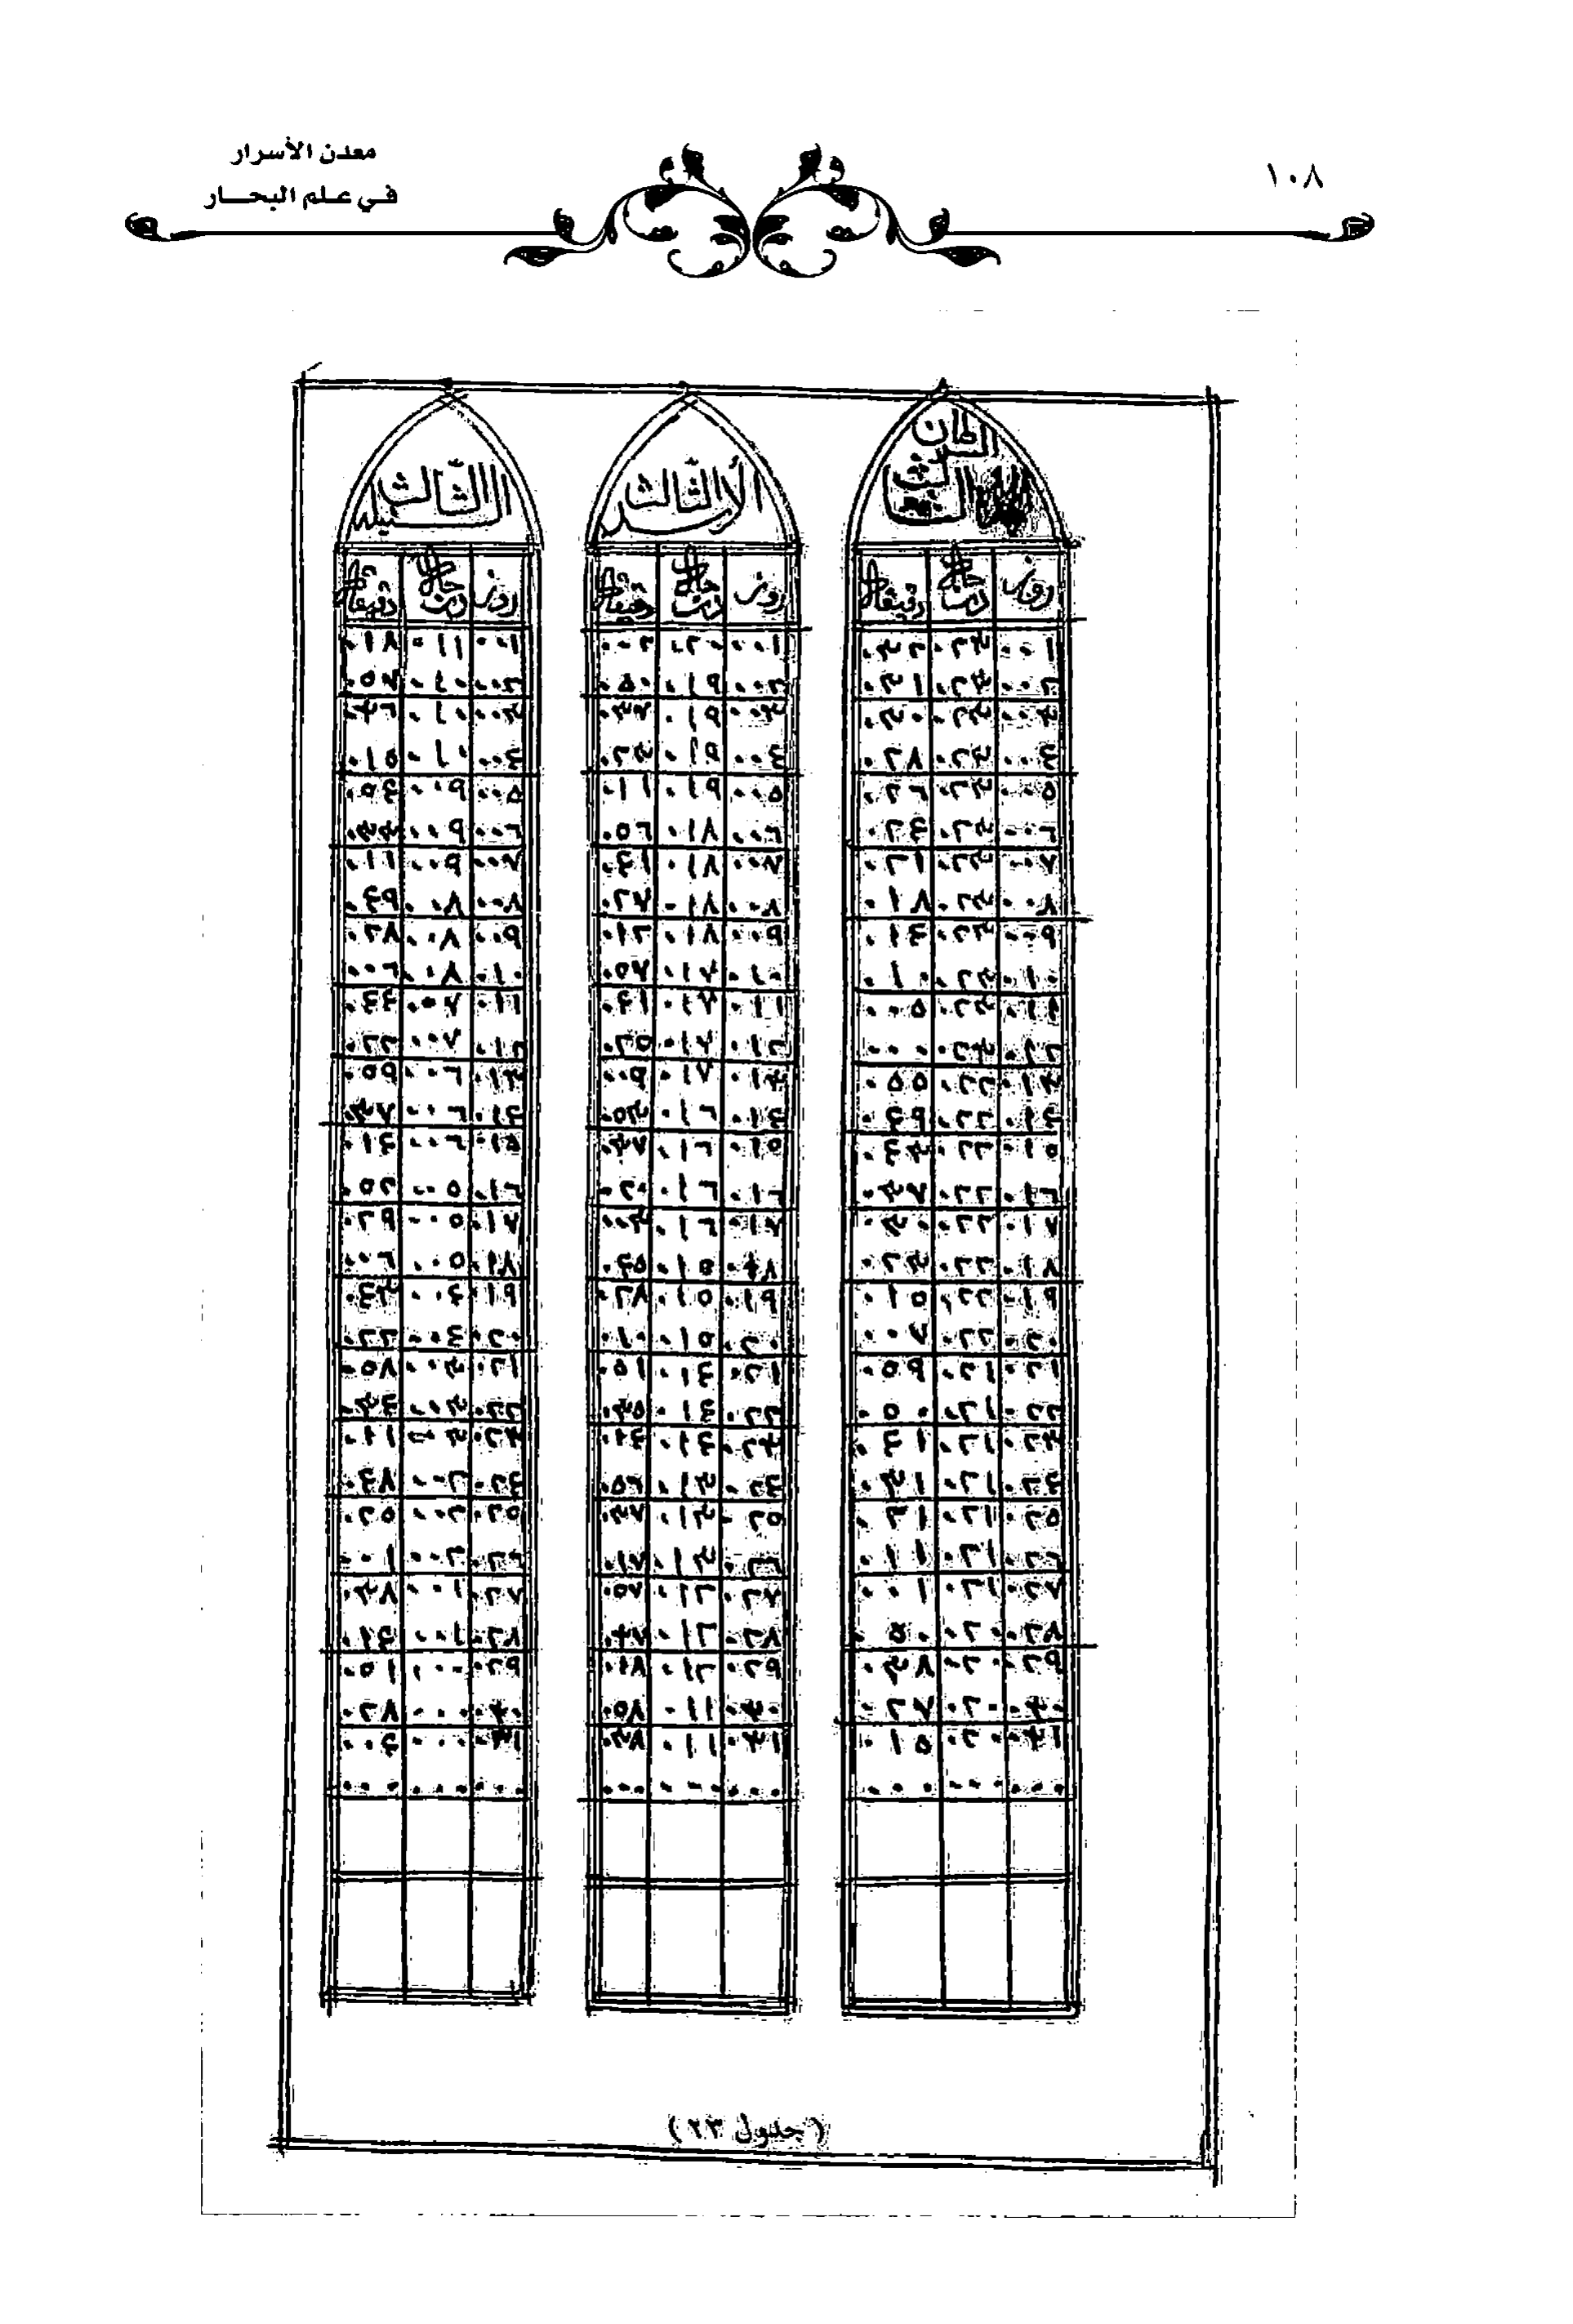 معدن الأسرار
في علم البحار
١٠٨
السرطان الثالث
روز درجات دقيقات
٠٠١ ٠٢٣ ٠٣٢
٠٠٢ ٠٢٣ ٠٣١
٠٠٣ ٠٢٣ ٠٣٠
٠٠٤ ٠٢٣ ٠٢٨
٠٠٥ ٠٢٣ ٠٢٦
٠٠٦ ٠٢٣ ٠٢٤
٠٠٧ ٠٢٣ ٠٢١
٠٠٨ ٠٢٣ ٠١٨
٠٠٩ ٠٢٣ ٠١٤
٠١٠ ٠٢٣ ٠١٠
٠١١ ٠٢٣ ٠٠٥
٠١٢ ٠٢٣ ٠٠٠
٠١٣ ٠٢٢ ٠٥٥
٠١٤ ٠٢٢ ٠٤٩
٠١٥ ٠٢٢ ٠٤٣
٠١٦ ٠٢٢ ٠٣٧
٠١٧ ٠٢٢ ٠٣٠
٠١٨ ٠٢٢ ٠٢٣
٠١٩ ٠٢٢ ٠١٥
٠٢٠ ٠٢٢ ٠٠٧
٠٢١ ٠٢١ ٠٥٩
٠٢٢ ٠٢١ ٠٥٠
٠٢٣ ٠٢١ ٠٤١
٠٢٤ ٠٢١ ٠٣١
٠٢٥ ٠٢١ ٠٢١
٠٢٦ ٠٢١ ٠١١
٠٢٧ ٠٢١ ٠٠١
٠٢٨ ٠٢٠ ٠٥٠
٠٢٩ ٠٢٠ ٠٣٨
٠٣٠ ٠٢٠ ٠٢٧
٠٣١ ٠٢٠ ٠١٥
الثالث الأسد
روز درجات دقيقات
٠٠١ ٠٢٠ ٠٠٢
٠٠٢ ٠١٩ ٠٥٠
٠٠٣ ٠١٩ ٠٣٧
٠٠٤ ٠١٩
٠٠٥ ٠١٩ ٠١١
٠٠٦ ٠١٨ ٠٥٦
٠٠٧ ٠١٨ ٠٤١
٠٠٨ ٠١٨ ٠٢٧
٠٠٩ ٠١٨ ٠١٢
٠١٠ ٠١٧ ٠٥٧
٠١١ ٠١٧ ٠٤١
٠١٢ ٠١٧ ٠٢٥
٠١٣ ٠١٧ ٠٠٩
٠١٤ ٠١٦ ٠٥٣
٠١٥ ٠١٦ ٠٣٧
٠١٦ ٠١٦ ٠٢٠
٠١٧ ٠١٦ ٠٠٣
٠١٨ ٠١٥ ٠٤٥
٠١٩ ٠١٥ ٠٢٨
٠٢٠ ٠١٥ ٠١٠
٠٢١ ٠١٤ ٠٥١
٠٢٢ ٠١٤
٠٢٣ ٠١٤ ٠١٤
٠٢٤ ٠١٣ ٠٥٦
٠٢٥ ٠١٣ ٠٣٧
٠٢٦ ٠١٣ ٠١٧
٠٢٧ ٠١٢ ٠٥٧
٠٢٨ ٠١٢ ٠٣٧
٠٢٩ ٠١٢ ٠١٨
٠٣٠ ٠١١ ٠٥٨
٠٣١ ٠١١ ٠٣٨
الثالث السنبله
روز درجات دقيقات
٠٠١ ٠١١ ٠١٨
٠٠٢ ٠١٠ ٠٥٧
٠٠٣ ٠١٠ ٠٣٦
٠٠٤ ٠١٠ ٠١٥
٠٠٥ ٠٠٩ ٠٥٤
٠٠٦ ٠٠٩ ٠٣٣
٠٠٧ ٠٠٩ ٠١١
٠٠٨ ٠٠٨ ٠٤٩
٠٠٩ ٠٠٨ ٠٢٨
٠١٠ ٠٠٨ ٠٠٦
٠١١ ٠٠٧ ٠٤٤
٠١٢ ٠٠٧ ٠٢٢
٠١٣ ٠٠٦ ٠٥٩
٠١٤ ٠٠٦ ٠٣٧
٠١٥ ٠٠٦ ٠١٤
٠١٦ ٠٠٥ ٠٥٢
٠١٧ ٠٠٥ ٠٢٩
٠١٨ ٠٠٥ ٠٠٦
٠١٩ ٠٠٤ ٠٤٣
٠٢٠ ٠٠٤ ٠٢٢
٠٢١ ٠٠٣ ٠٥٨
٠٢٢ ٠٠٣ ٠٣٤
٠٢٣ ٠٠٣ ٠١١
٠٢٤ ٠٠٢ ٠٤٨
٠٢٥ ٠٠٢ ٠٢٥
٠٢٦ ٠٠٢ ٠٠١
٠٢٧ ٠٠١ ٠٣٨
٠٢٨ ٠٠١ ٠١٤
٠٢٩ ٠٠٠ ٠٥١
٠٣٠ ٠٠٠ ٠٢٨
٠٣١ ٠٠٠ ٠٠٤
(جدول ٢٣)